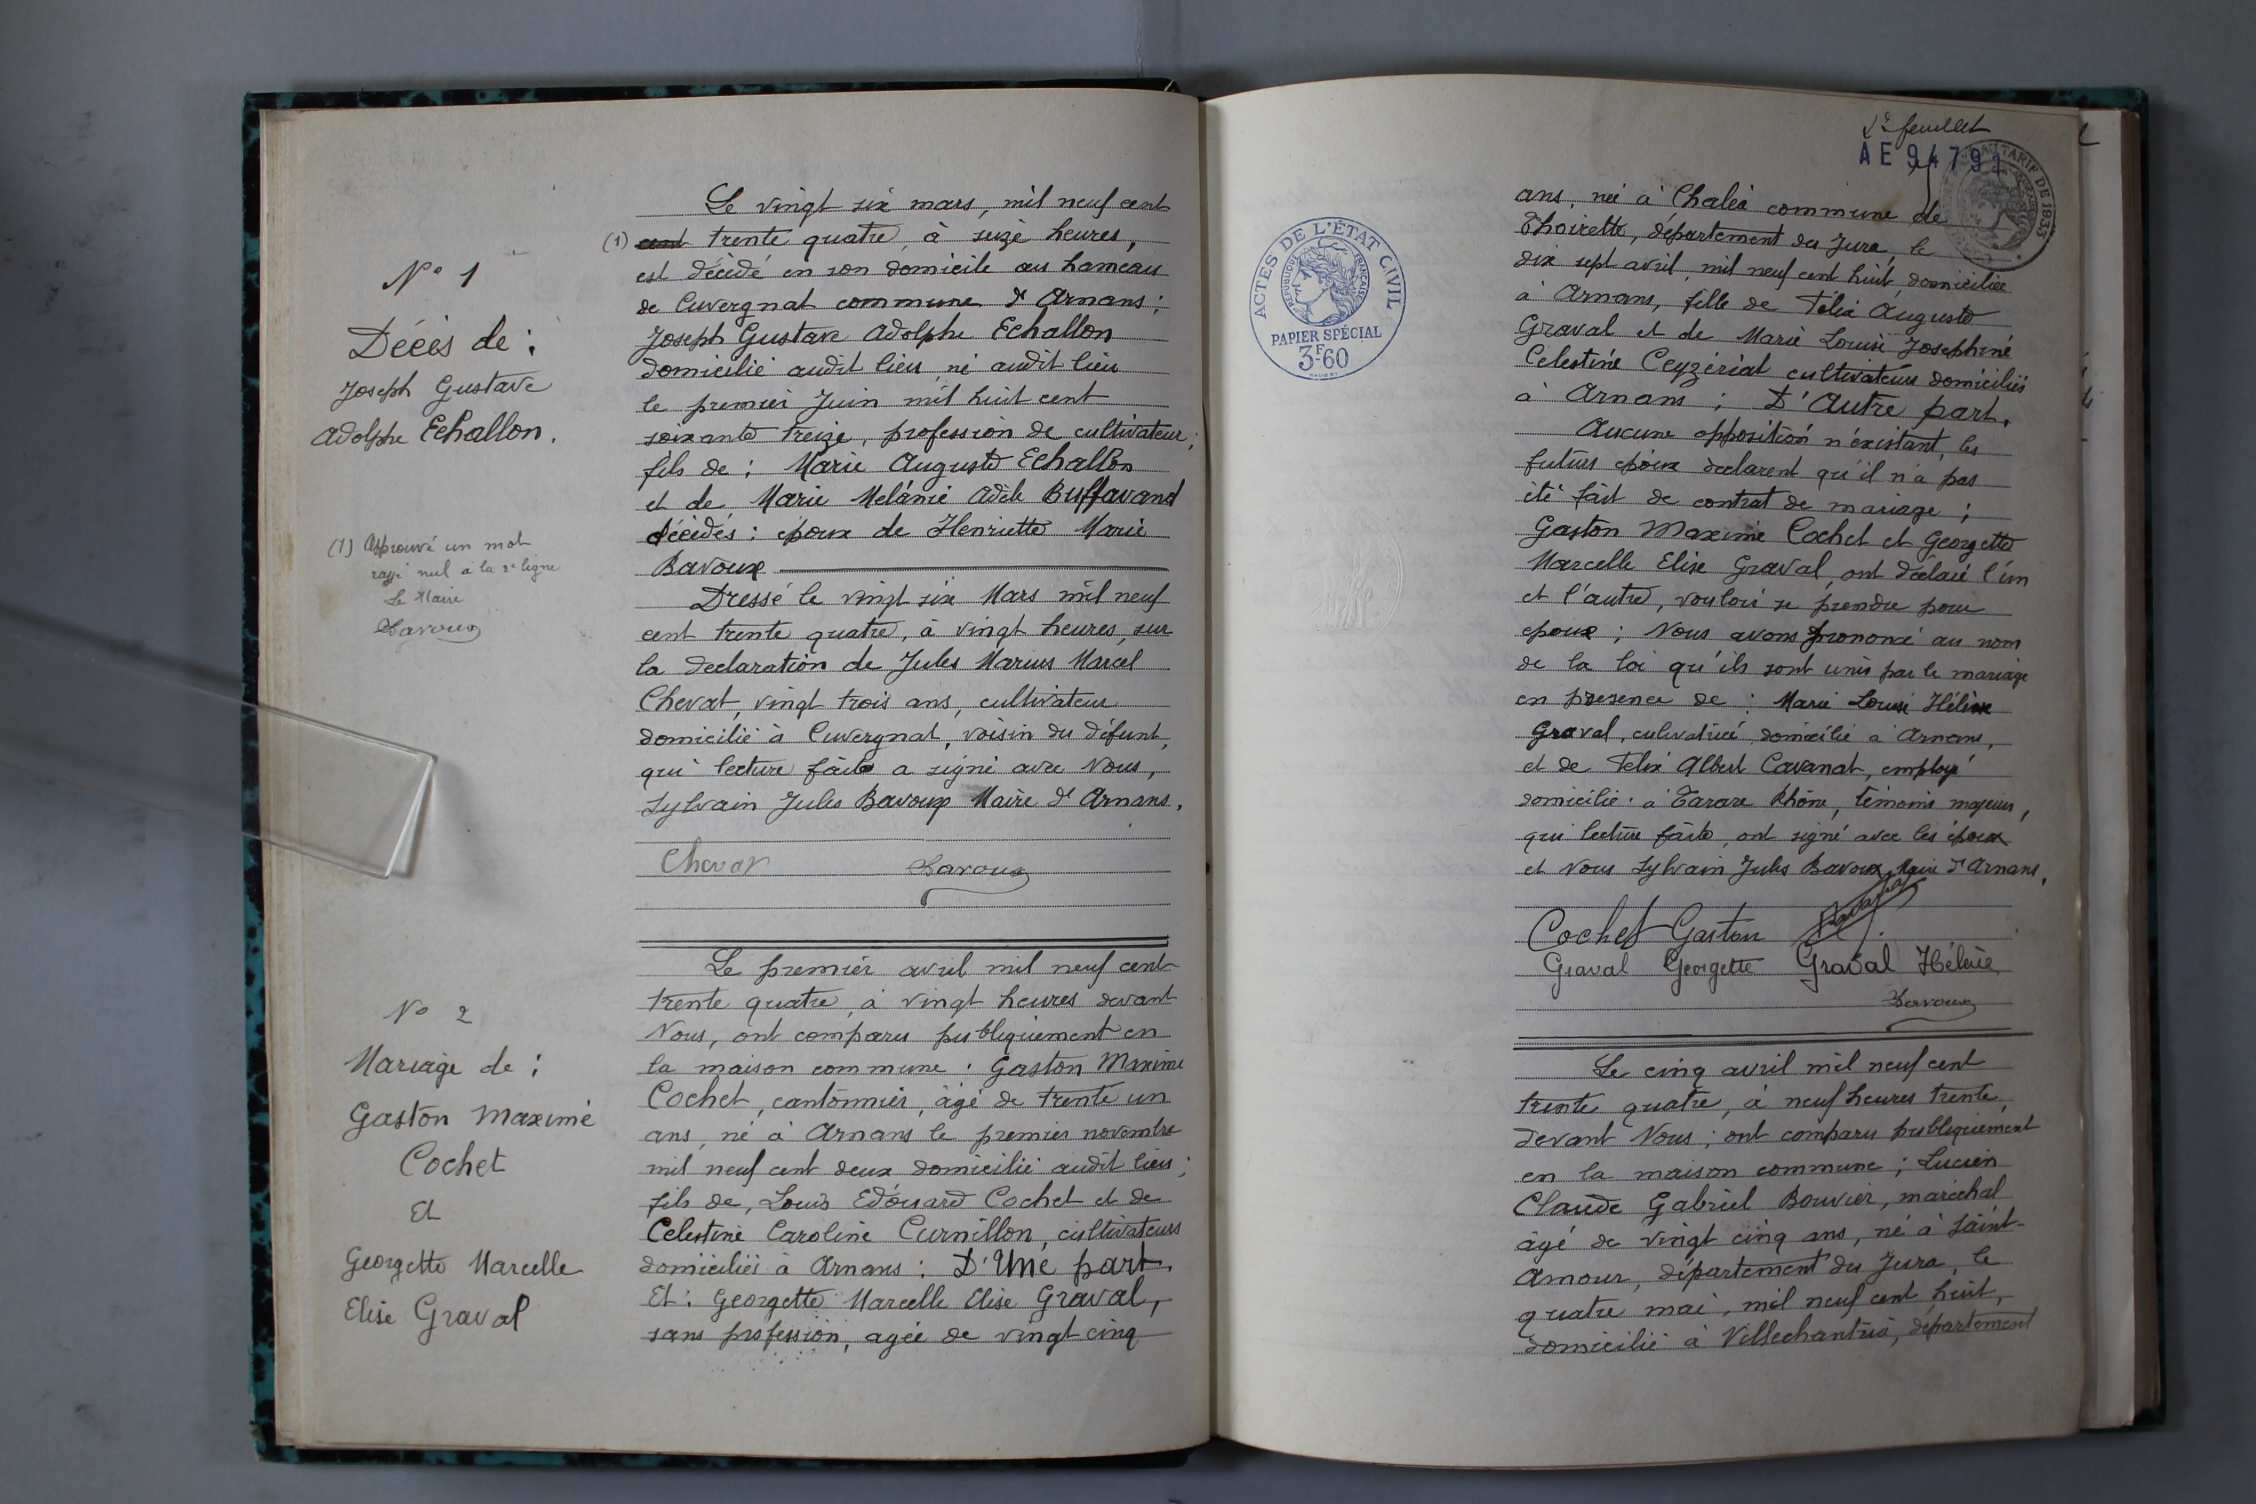 N° 1
Décès de :
Joseph Gustave
Adolphe Echallon.
(1) Approuvé un mot
rayé nul à la 2e ligne
Le Maire
Bavoux
Le vingt six mars, mil neuf cent
(1) cent trente quatre, à seize heures,
est décédé en son domicile au hameau
de Cuvergnat commune d'Arnans ;
Joseph Gustave Adolphe Echallon
domicilié audit lieu né audit lieu
le premier Juin mil huit cent
soixante treize, profession de cultivateur ;
fils de : Marie Auguste Echallon
et de Marie Mélanie Adèle Buffavand
décédés : époux de Henriette Marie
Bavoux
Dressé le vingt six Mars mil neuf
cent trente quatre, à vingt heures, sur
la declaration de Jules Marius Marcel
Chevat, vingt trois ans, cultivateur
domicilié à Cuvergnat, voisin du défunt,
qui lecture faite a signé avec Nous,
Sylvain Jules Bavoux Maire d'Arnans.
Chevat Bavoux
N° 2
Mariage de :
Gaston Maxime
Cochet
Et
Georgette Marcelle
Elise Graval
Le premier avril mil neuf cent
trente quatre, à vingt heures devant
Nous, ont comparu publiquement en
la maison commune : Gaston Maxime
Cochet, cantonnier, âgé de trente un
ans, né à Arnans le premier novembre
mil neuf cent deux domicilié audit lieu ;
fils de, Louis Edouard Cochet et de
Celestine Caroline Curnillon, cultivateurs
domiciliés à Arnans : D'Une part.
Et : Georgette Marcelle Elise Graval,
sans profession, agée de vingt cinq
2e feuillet
AE 94791
TARIF DE 1933
ACTES DE L'ÉTAT CIVIL
RÉPUBLIQUE FRANÇAISE
PAPIER SPÉCIAL
3F60
ans, née à Chaléa commune de
Thoirette, département du Jura, le
dix sept avril, mil neuf cent huit, domiciliée
à Arnans, fille de Félix Auguste
Graval et de Marie Louise Josephine
Celestine Ceyzériat cultivateurs domiciliés
à Arnans ; D'Autre part.
Aucune opposition n'existant, les
futurs époux declarent qu'il n'a pas
été fait de contrat de mariage ;
Gaston Maxime Cochet et Georgette
Marcelle Elise Graval, ont déclaré l'un
et l'autre, vouloir se prendre pour
epoux ; Nous avons prononcé au nom
de la loi qu'ils sont unis par le mariage
en presence de : Marie Louise Hélène
Graval, culivatrice domicilié à Arnans,
et de Felix Albert Cavanat, employé
domicilié à Tarare Rhône, témoins majeurs,
qui lecture faite, ont signé avec les époux
et Nous Sylvain Jules Bavoux Maire d'Arnans.
Cochet Gaston
Graval Georgette Graval Hélène
Bavoux
Le cinq avril mil neuf cent
trente quatre, à neuf heures trente,
devant Nous ; ont comparu publiquement
en la maison commune ; Lucien
Claude Gabriel Bouvier, maréchal
âgé de vingt cinq ans, né à Saint-
Amour, département du Jura, le
quatre mai, mil neuf cent huit,
domicilié à Villechantria, département